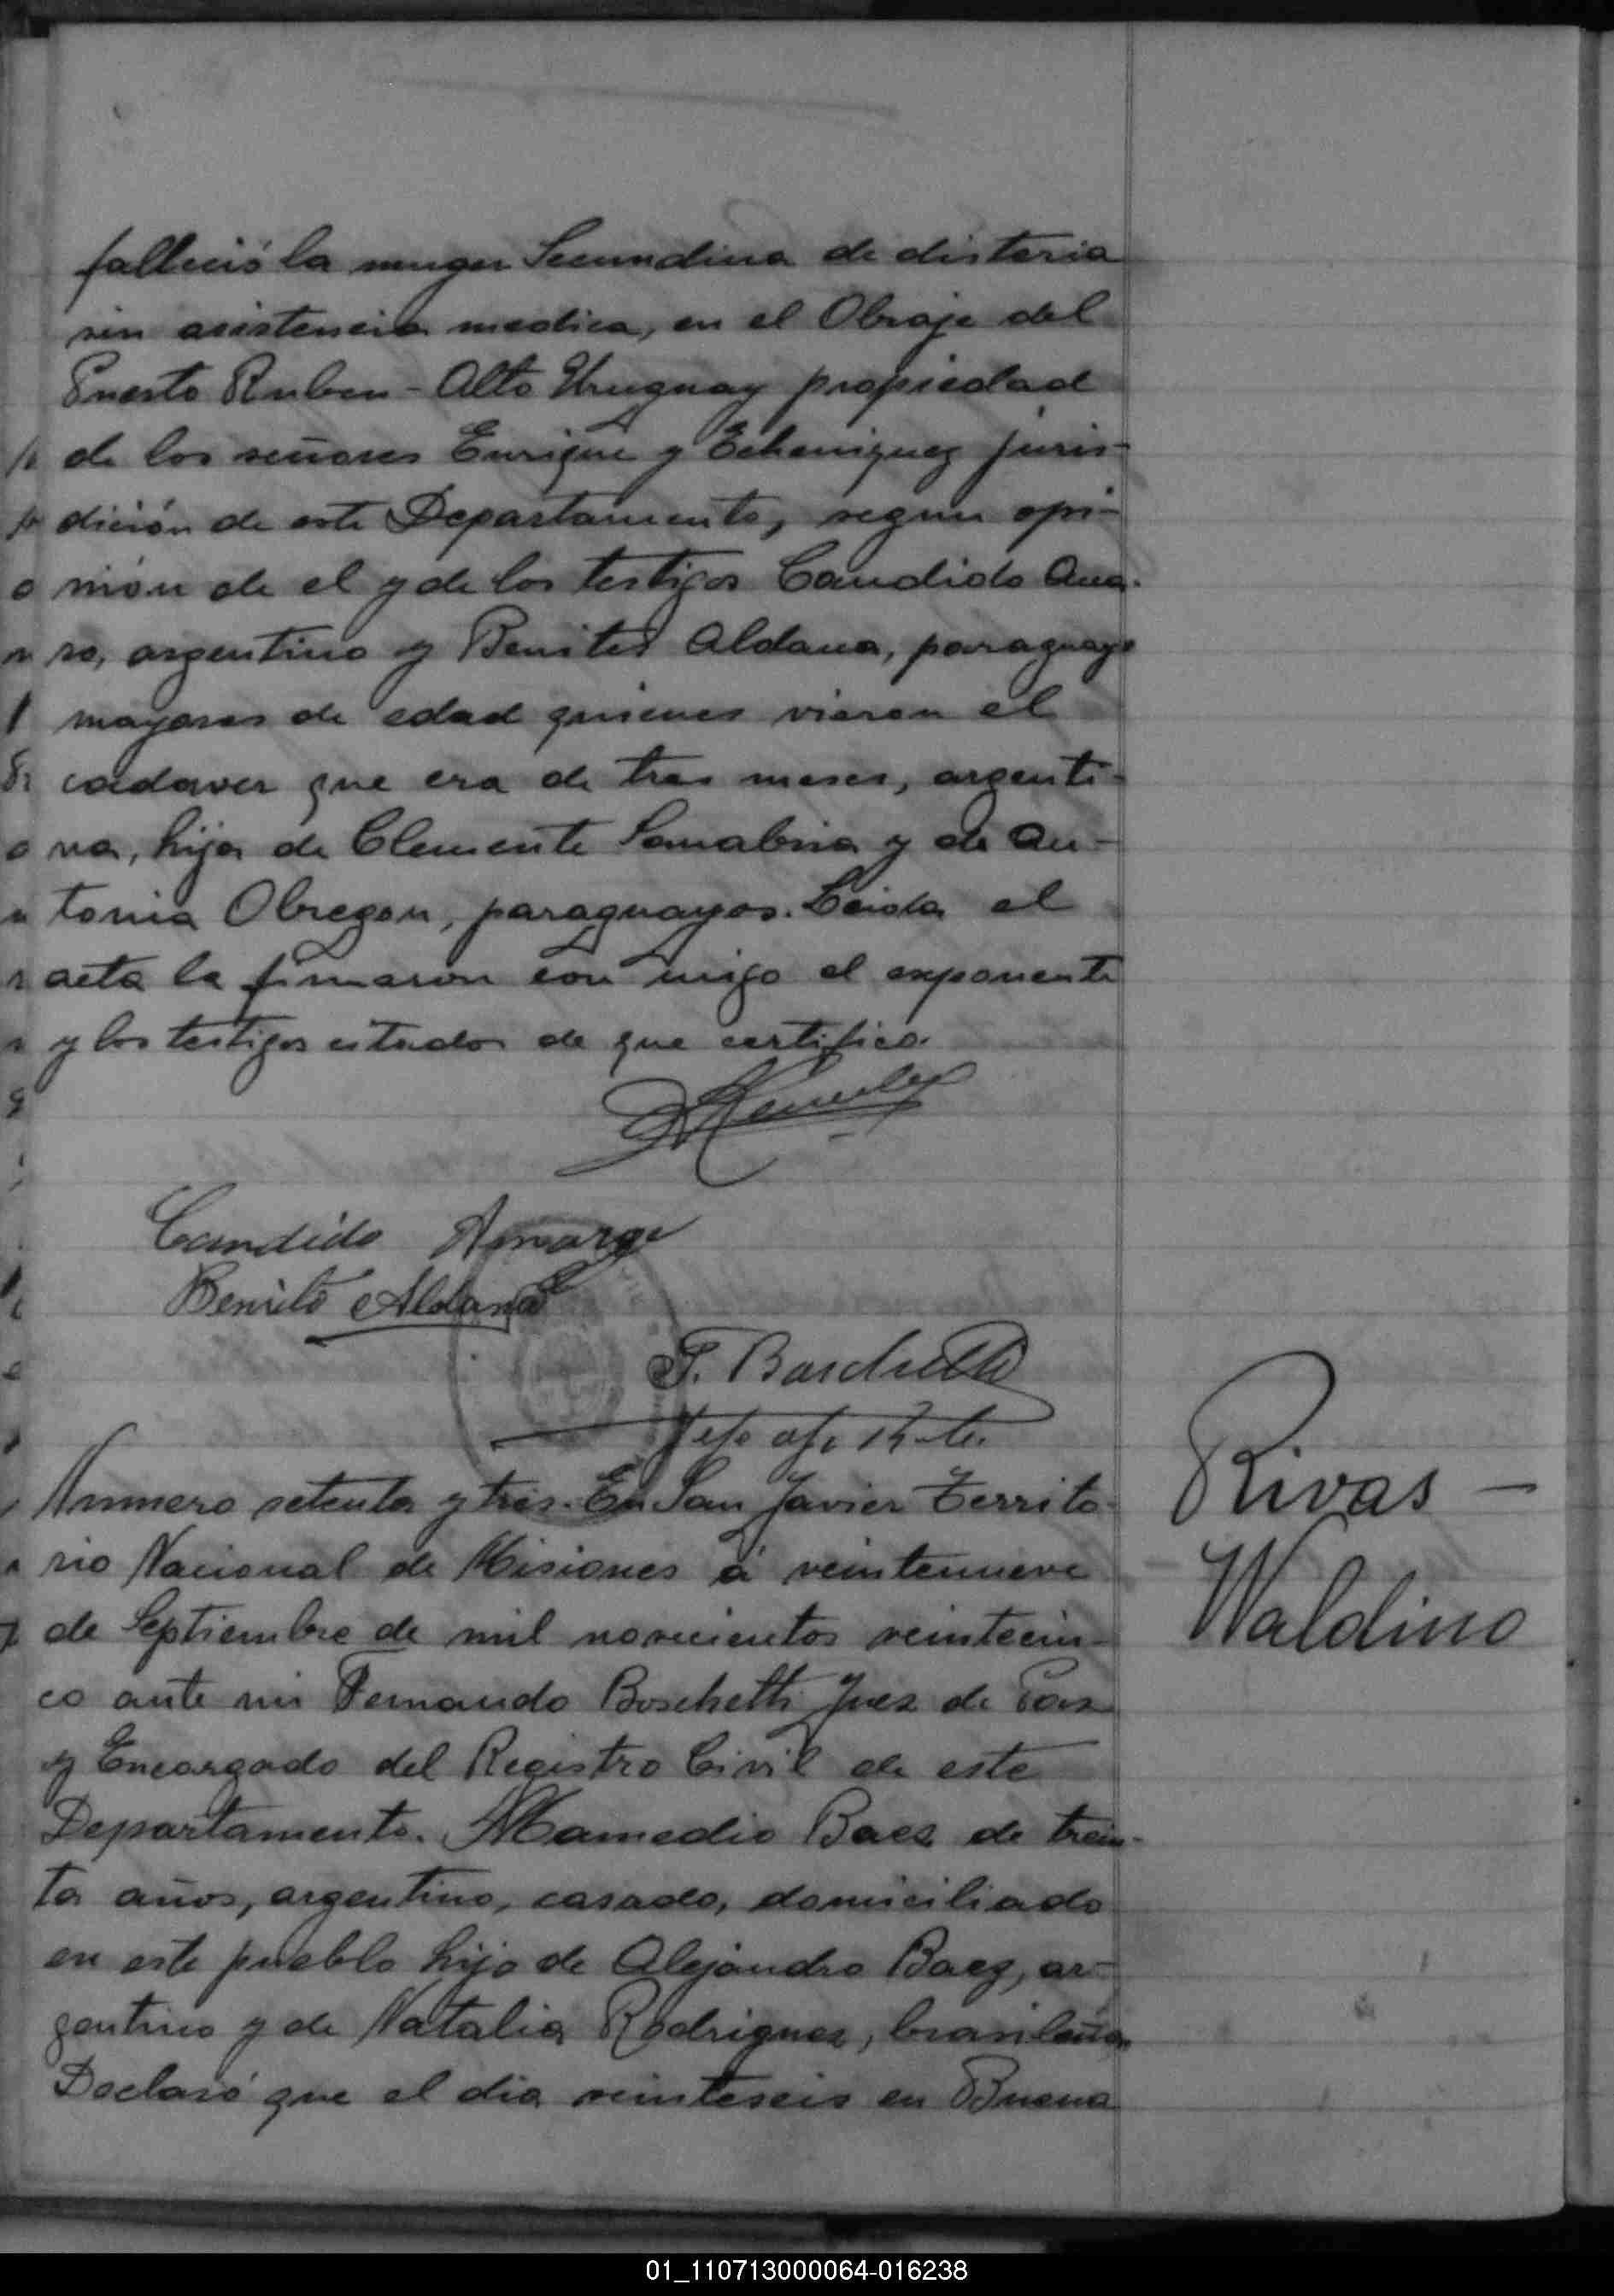 falleció la muger Secundina de disteria
sin asistencia medica, en el Obraje del
Puerto Ruben - Alto Uruguay propiedad
de los señores Enrique y Echeniquez juris-
dición de este Departamento, segun opi-
nión de el y de los testigos Candido
ro, argentino y Benites Aldana, paraguayo
mayores de edad quienes vieron el
cadaver que era de tres meses, argenti-
na, hija de Clemente Sanabria y de An-
tonia Obregon, paraguayos. Leida el
acta la firmaron con migo el exponente
y los testigos citados de que certifico.
Candido
Benito Aldana
Rivas -
Waldino
Numero setenta y tres. En San Javier Territo-
rio Nacional de Misiones á veintenueve
de Septiembre de mil novecientos veintecin-
co ante mi Fernando Boschetti Juez de Paz
y Encargado del Registro Civil de este
Departamento. Mamedio Baez de trein-
ta años, argentino, casado, domiciliado
en este pueblo hijo de Alejandro Baez, ar-
gentino y de Natalia Rodriguez, brasileña
Declaró que el dia veinteseis en Buena
01_110713000064-016238